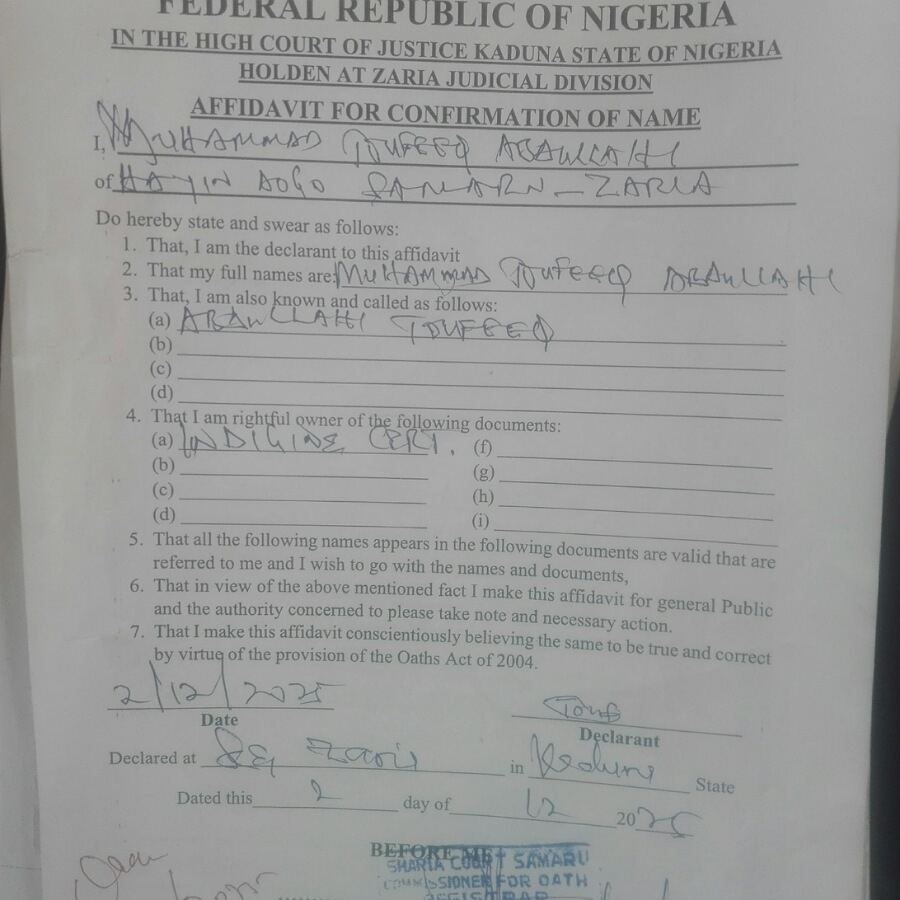 FEDERAL REPUBLIC OF NIGERIA
IN THE HIGH COURT OF JUSTICE KADUNA STATE OF NIGERIA
HOLDEN AT ZARIA JUDICIAL DIVISION
AFFIDAVIT FOR CONFIRMATION OF NAME
I, MUHAMMAD TOUFEEQ ABDULLAHI
of HAYIN DOGO SAMARN - ZARIA
Do hereby state and swear as follows:
1. That, I am the declarant to this affidavit
2. That my full names are: MUHAMMAD TOUFEEQ ABDULLAHI
3. That, I am also known and called as follows:
(a) ABDULLAHI TOUFEEQ
(b)
(c)
(d)
4. That I am rightful owner of the following documents:
(a) INDIGINE CERT. (f)
(b) (g)
(c) (h)
(d) (i)
5. That all the following names appears in the following documents are valid that are
referred to me and I wish to go with the names and documents,
6. That in view of the above mentioned fact I make this affidavit for general Public
and the authority concerned to please take note and necessary action.
7. That I make this affidavit conscientiously believing the same to be true and correct
by virtue of the provision of the Oaths Act of 2004.
2/12/2025 Touf
Date Declarant
Declared at Zaria in Kaduna State
Dated this 2 day of 12 2025
BEFORE ME
SHARIA COURT SAMARU
COMMISSIONER FOR OATH
REGISTRAR